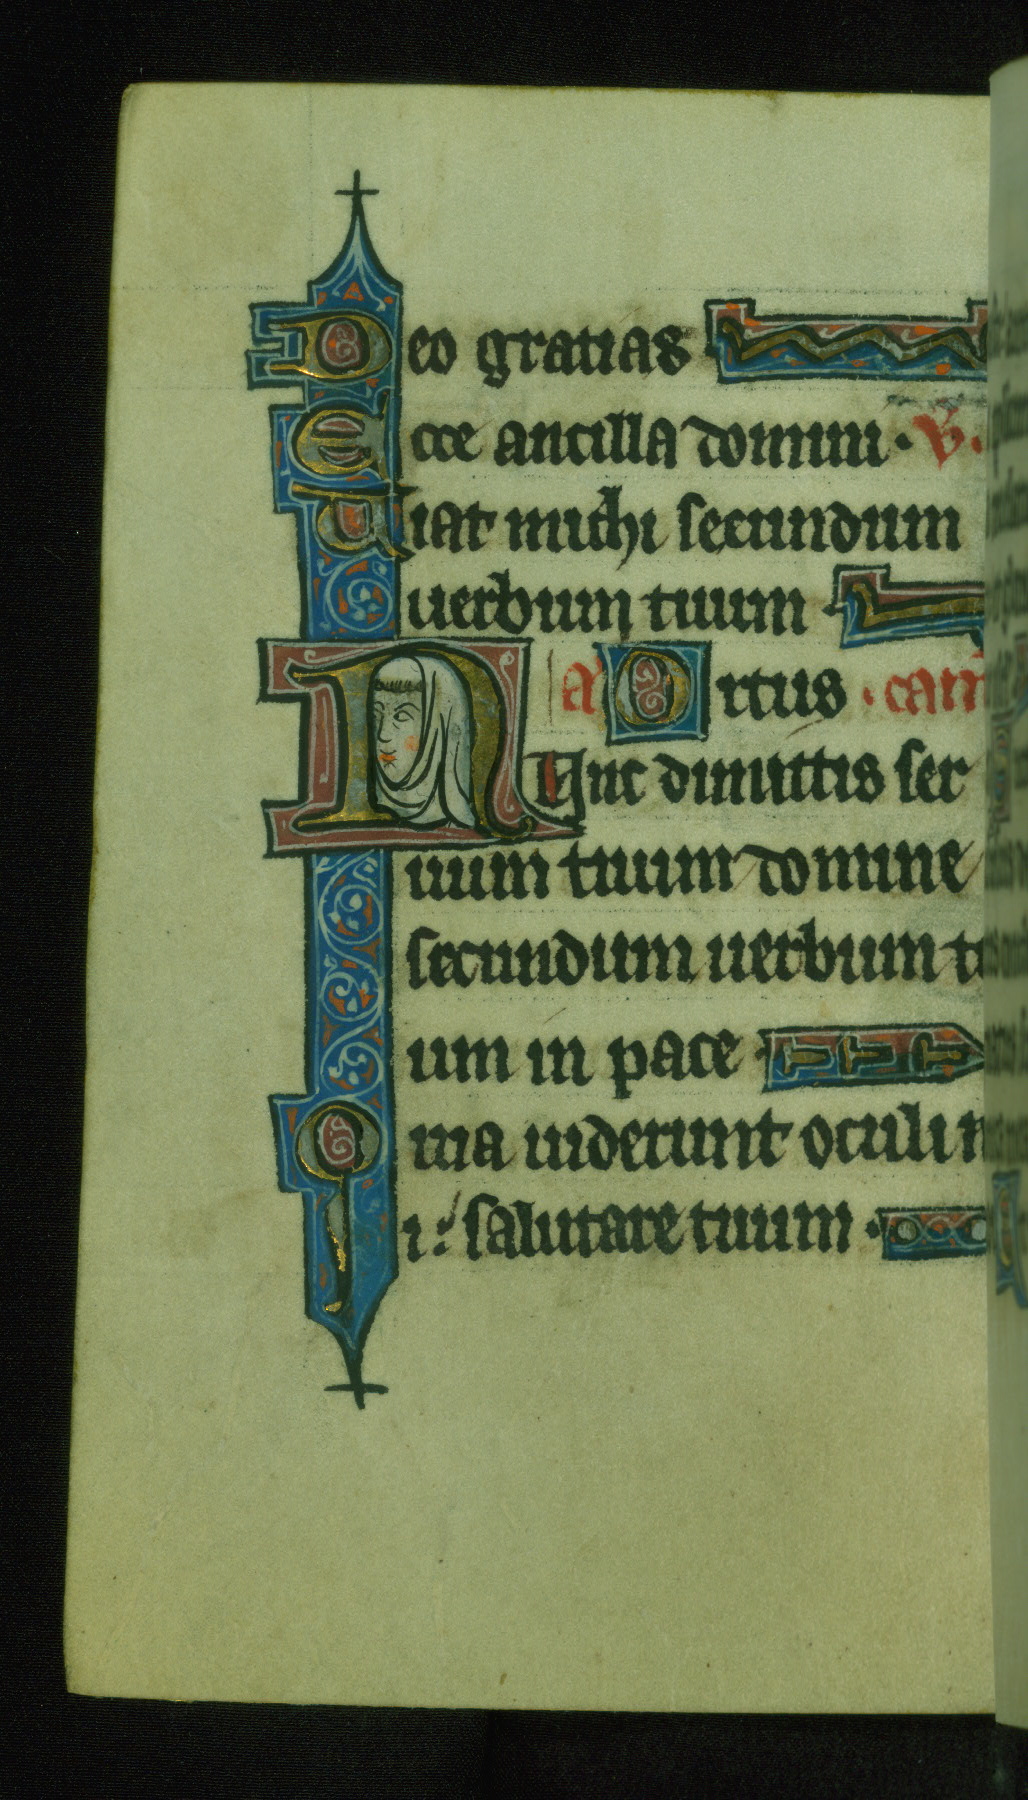 Deo gratias
Ecce ancilla domini · V ·
Fiat michi secundum
uerbum tuum
a Ortus · can
NUnc dimittis ser
uum tuum domine
secundum uerbum tu
um in pace
Quia uiderunt oculi m
i : salutare tuum ·